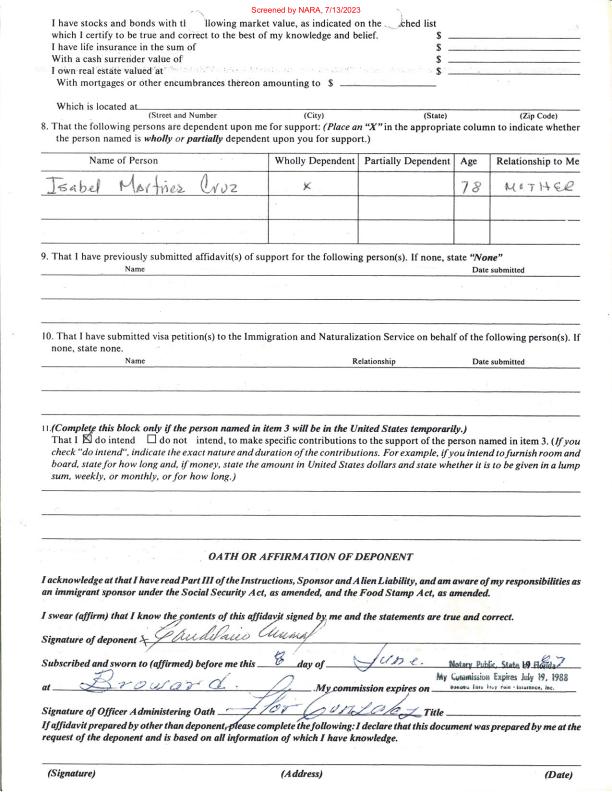 Screened by NARA, 7/13/2023
I have stocks and bonds with llowing market value, as indicated on the ched list
which I certify to be true and correct to the best of my knowledge and belief. $
I have life insurance in the sum of $
With a cash surrender value of $
I own real estate valued at $
With mortgages or other encumbrances thereon amounting to $
Which is located at
(Street and Number) (City) (State) (Zip Code)
8. That the following persons are dependent upon me for support: (Place an "X" in the appropriate column to indicate whether
the person named is wholly or partially dependent upon you for support.)
Name of Person Wholly Dependent Partially Dependent Age Relationship to Me
Isabel Martinez Cruz x 78 MOTHER
9. That I have previously submitted affidavit(s) of support for the following person(s). If none, state "None"
Name Date submitted
10. That I have submitted visa petition(s) to the Immigration and Naturalization Service on behalf of the following person(s). If
none, state none.
Name Relationship Date submitted
11.(Complete this block only if the person named in item 3 will be in the United States temporarily.)
That I ☒ do intend ☐ do not intend, to make specific contributions to the support of the person named in item 3. (If you
check "do intend", indicate the exact nature and duration of the contributions. For example, if you intend to furnish room and
board, state for how long and, if money, state the amount in United States dollars and state whether it is to be given in a lump
sum, weekly, or monthly, or for how long.)
OATH OR AFFIRMATION OF DEPONENT
I acknowledge at that I have read Part III of the Instructions, Sponsor and Alien Liability, and am aware of my responsibilities as
an immigrant sponsor under the Social Security Act, as amended, and the Food Stamp Act, as amended.
I swear (affirm) that I know the contents of this affidavit signed by me and the statements are true and correct.
Signature of deponent x
Subscribed and sworn to (affirmed) before me this 8 day of June. 19 87
Notary Public, State of Florida
at Broward. My commission expires on My Commission Expires July 19, 1988
Signature of Officer Administering Oath Flor Gonzalez Title
If affidavit prepared by other than deponent, please complete the following: I declare that this document was prepared by me at the
request of the deponent and is based on all information of which I have knowledge.
(Signature) (Address) (Date)